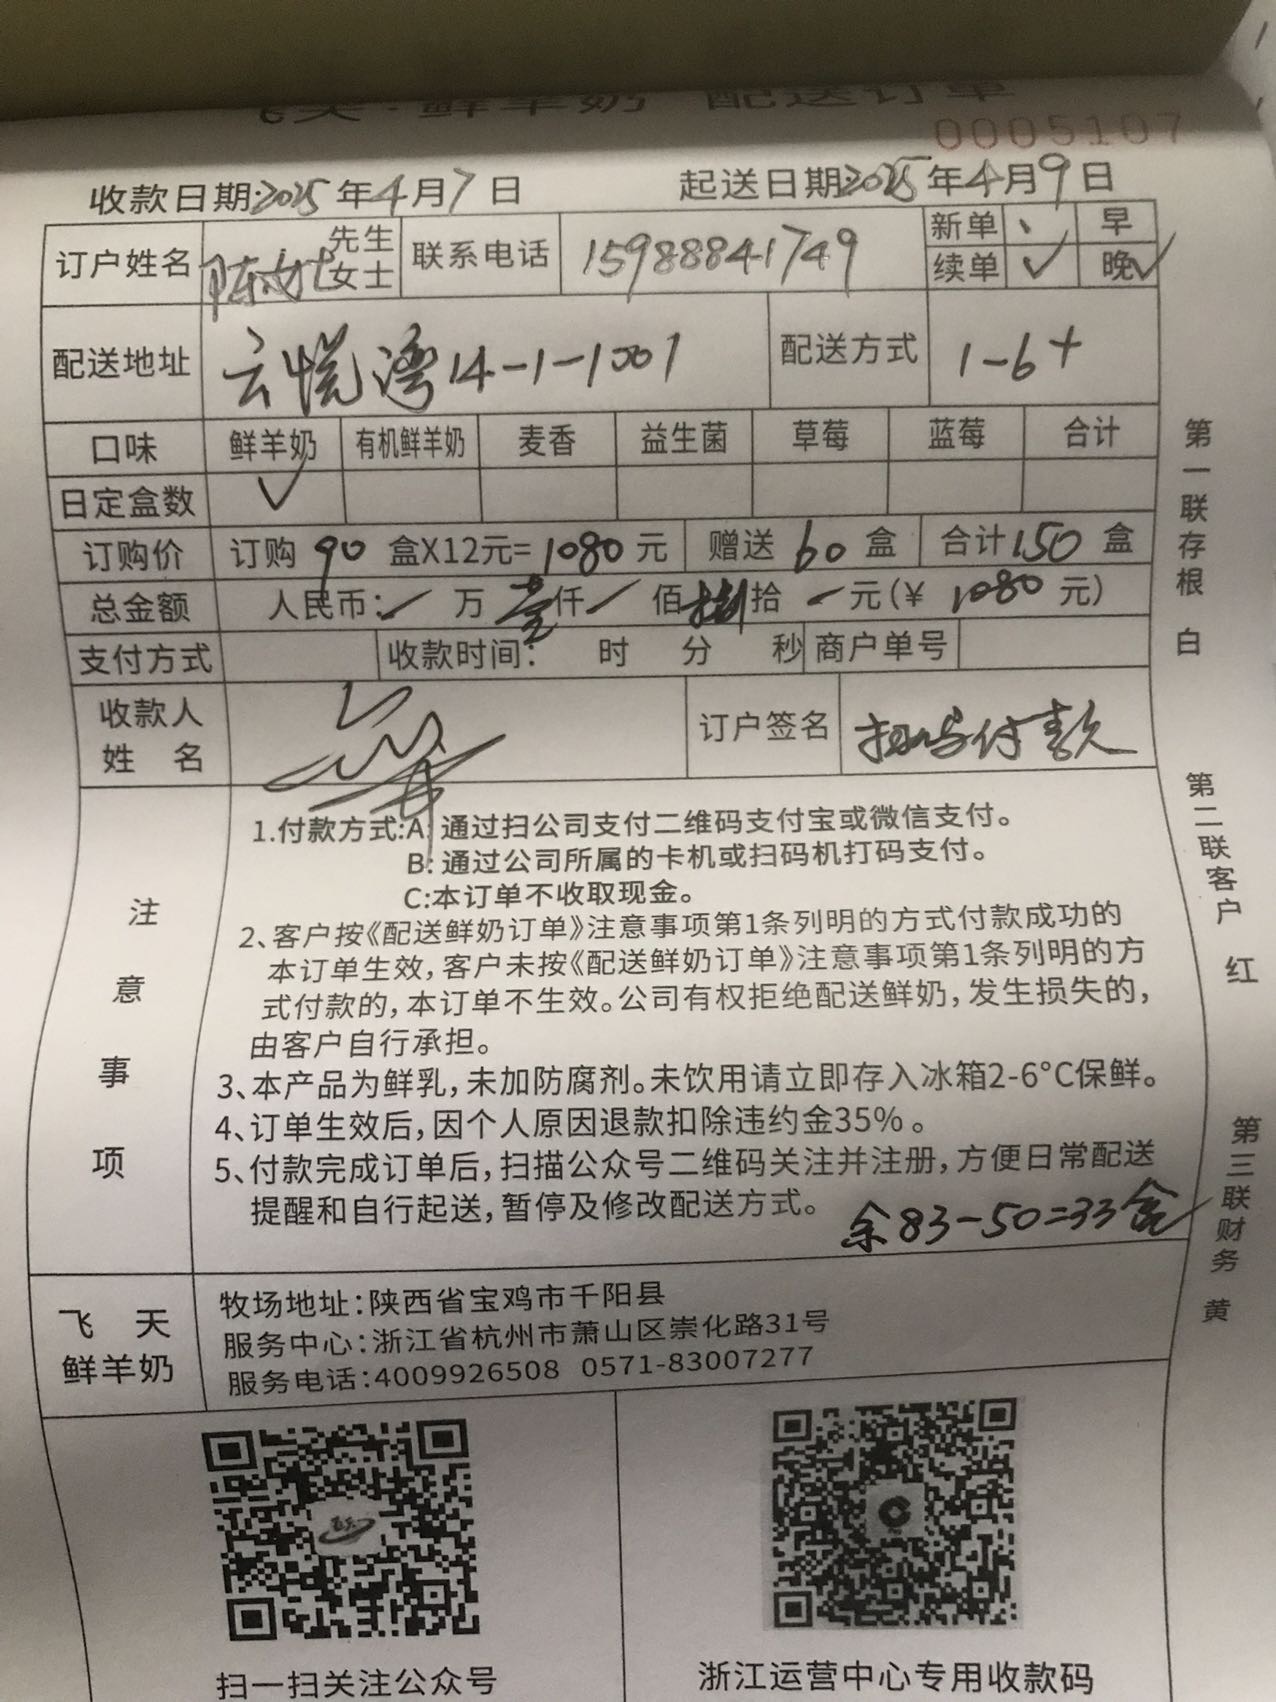 飞天·鲜羊奶 配送订单
0005107
收款日期:2025年4月7日 起送日期2025年4月9日
订户姓名 陈女士 先生 女士 联系电话 15988841749 新单 、 早
续单 ✓ 晚✓
配送地址 云悦湾14-1-1001 配送方式 1-6+
口味 鲜羊奶 有机鲜羊奶 麦香 益生菌 草莓 蓝莓 合计
日定盒数 ✓
订购价 订购 90 盒X12元=1080元 赠送 60 盒 合计150 盒
总金额 人民币:/ 万 壹仟 / 佰捌拾 / 元(¥ 1080 元)
支付方式 收款时间: 时 分 秒 商户单号
收款人
姓 名
订户签名 扫码付款
注意事项
1.付款方式:A: 通过扫公司支付二维码支付宝或微信支付。
B: 通过公司所属的卡机或扫码机打码支付。
C:本订单不收取现金。
2、客户按《配送鲜奶订单》注意事项第1条列明的方式付款成功的
本订单生效,客户未按《配送鲜奶订单》注意事项第1条列明的方
式付款的,本订单不生效。公司有权拒绝配送鲜奶,发生损失的,
由客户自行承担。
3、本产品为鲜乳,未加防腐剂。未饮用请立即存入冰箱2-6°C保鲜。
4、订单生效后,因个人原因退款扣除违约金35%。
5、付款完成订单后,扫描公众号二维码关注并注册,方便日常配送
提醒和自行起送,暂停及修改配送方式。
余83-50=33盒
飞 天
鲜羊奶
牧场地址:陕西省宝鸡市千阳县
服务中心:浙江省杭州市萧山区崇化路31号
服务电话:4009926508 0571-83007277
扫一扫关注公众号
浙江运营中心专用收款码
第一联存根 白
第二联客户 红
第三联财务 黄